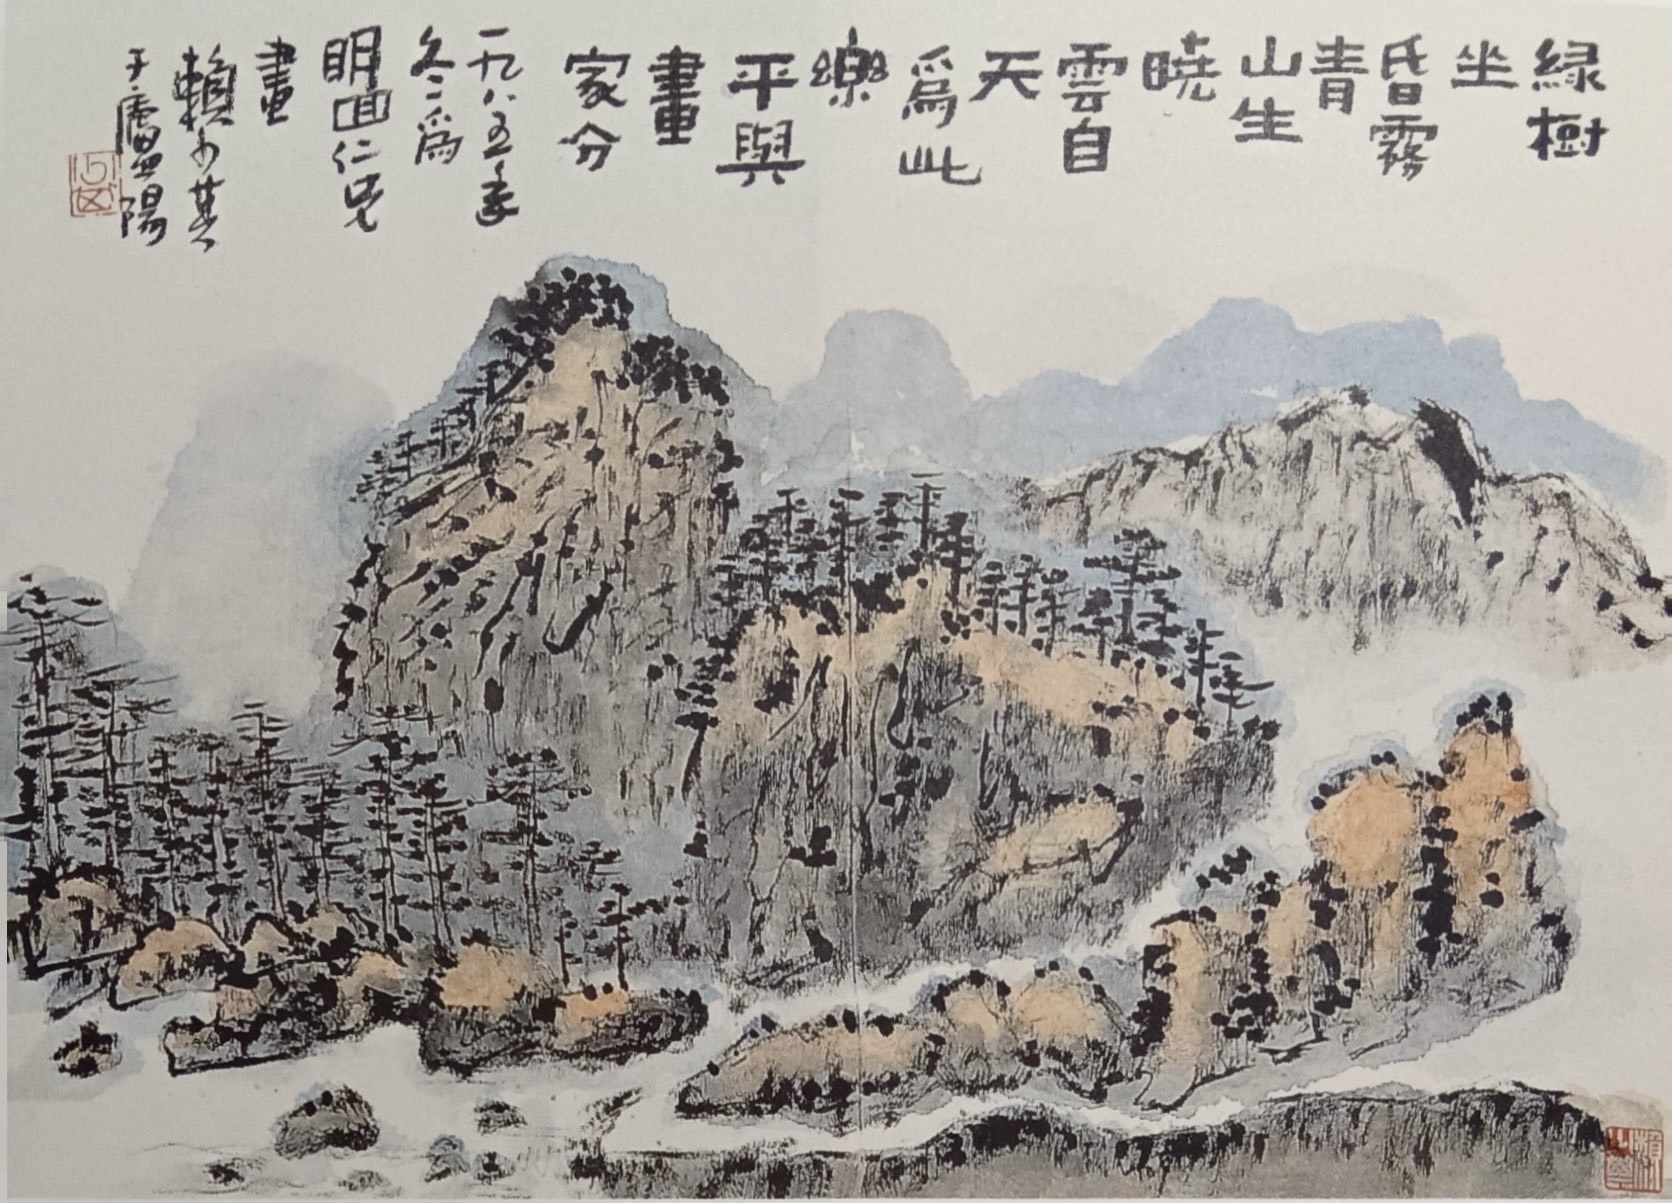 緑樹
坐
昏霧
青
山生
暁
雲自
天
爲此
樂
平與
畫
家分
一九八五年
冬爲
明仁兄
畫
賴少其
于廬陽